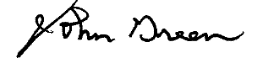 John Green